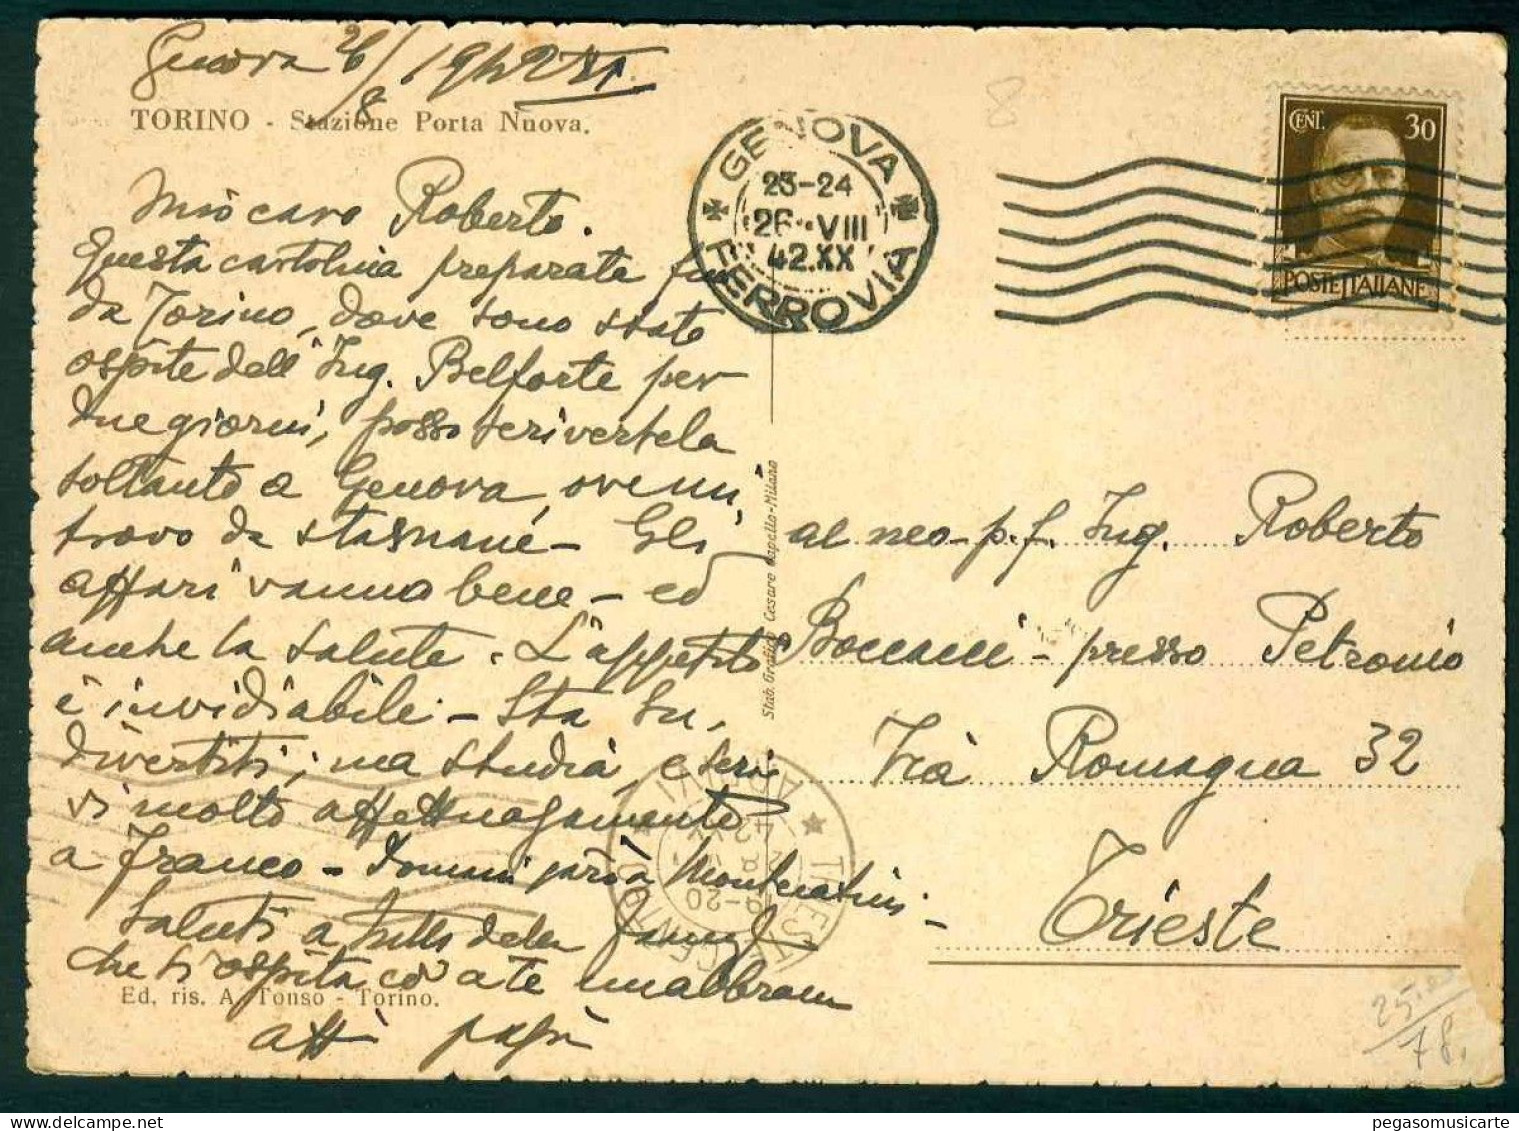 Genova 26/8 1942 XX
TORINO - Stazione Porta Nuova.
Mio caro Roberto.
Questa cartolina preparata fu
da Torino, dove sono stato
ospite dell'Ing. Belforte per
due giorni, posso scrivertela
soltanto a Genova, ove mi
trovo da stasmané - Gli
affari vanno bene - ed
anche la salute. L'appetito
è invidiabile - Sta su,
divertiti; ma studia, e scri
vi molto affettuosamente
a Franco - Domani sarò a Montecatini -
Saluti a tutta della famigl
che ti ospita ed a te un abbraccio
aff. papà
Ed. ris. A. Tonso - Torino.
GENOVA
23-24
26 VIII
42.XX
FERROVIA
CENT. 30
POSTE ITALIANE
Stab. Grafico Cesare Capello-Milano
al neo-p.f. Ing. Roberto
presso Petronio
Via Romagna 32
Trieste
TRIESTE CENTRO
ARRIVI
19-20
42
25
78.
8
pegasomusicarte